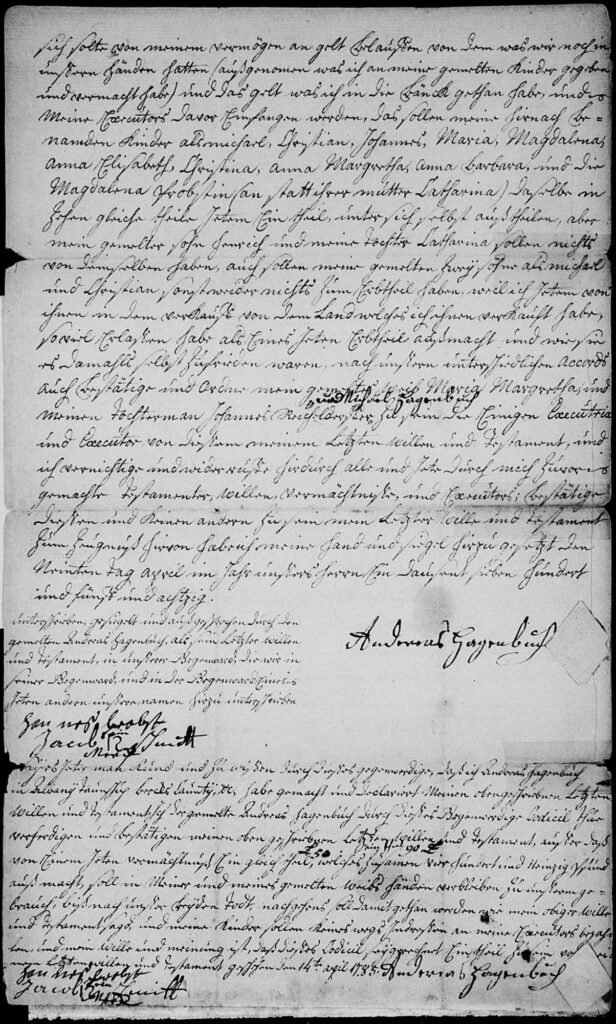 sich solte von meinem vermögen an gelt Erlauffen von dem was wir noch in
unssern händen hatten (außgenomen was ich an meine gemelten Kinder gegeben
und vermacht habe) und das gelt was ich in die Bänck gethan habe, und
Meine Executors davor Einfangen werden, das sollen meine hirnach be-
nanden Kinder als michael, Christian, Johannes, Maria, Magdalena,
Anna Elisabeth, Christina, Anna Margretha, Anna Barbara, und die
Magdalena Probstin (an statt ihrer mutter Catharina) Daselbe in
Zehen gleiche theile Jetem Ein theil, unter sich selbst auß theilen, aber
mein gemelter sohn Henrich und meine Tochter Catharina sollen nichts
von demselben haben, auch sollen meine gemelten Zwey söhne als michael
und Christian sonst weider nichts zum Erbtheil haben, weil ich Jetem von
ihnen in dem verkauff von dem Land welches ich ihnen verkaufft habe,
so viel Erlassen habe als Eines Jeten Erbtheil außmacht und wie sie
es damahls selbst zufrieden waren, nach unssern unterschiedlichen Accords
Auch bestätige und Ordne mein gemeltes weib Maria Margretha, und
und Michael Hagenbuch
Meinen Tochterman Johannes Reichelderffer zu sein die Einigen Executrix
und Executor von diessem meinem Letzten willen und Testament, und
ich vernichtige und wider ruffe hirdurch alle und Jete durch mich zuvor
gemachte Testamenter, willen, vermächtnisse, und Executors; bestätige
Diessen und Keinen andern zu sein mein Letzter wille und Testament
Zum Zeugniß hirvon habe ich meine Hand und siegel hirzu gesetzt den
Neinten tag April im Jahr unssers herrn Ein Dausent sieben hundert
und fünff und achtzig.
unterschrieben, gesiegelt und außgesprochen durch den
gemelten Andreas Hagenbuch, als sein Letzter willen
und Testament, in unsserer Gegenward, die wir in
seiner Gegenward, und in der Gegenward Eines
Jeten andern unssere namen hirzu unterschrieben
Andereas Hagenbuch
Han nes Probst
Jacob Smitt
Merck
Jeter man Kund und zu wissen durch Dieses gegenwerdige, Daß ich Andreas Hagenbuch
in Albany Taunschip Berks Caunty, &c. habe gemacht und declariert Meinen oben geschriebenen Letzten
Willen und Testament, ich der gemelte Andreas Hagenbuch durch dieses Gegenwerdige Codicil thue
verferdigen und bestätigen meinen oben geschrieben Letzten willen und Testament, ausser daß
von Einem Jeten vermächtniß Ein gleich theil, welches zusamen vier hundert und Neinzig Pfund
auß macht, soll in Meiner und meines gemelten weibs händen verbleiben zu unsserm ge-
brauch, biß nach unsser beyden Todt, nachgehens soll damit gethan werden wie mein obiger Wille
und Testament sagt, und meine Kinder sollen Keines wegs Interessen an meine Executors bezah-
len, und mein Wille und meinung ist, daß dieses Codicil
Letzten willen und Testament geschehen den 14ten April 1785. Andereas Hagenbuch
Han nes Probst
Jacob Smitt
Merck